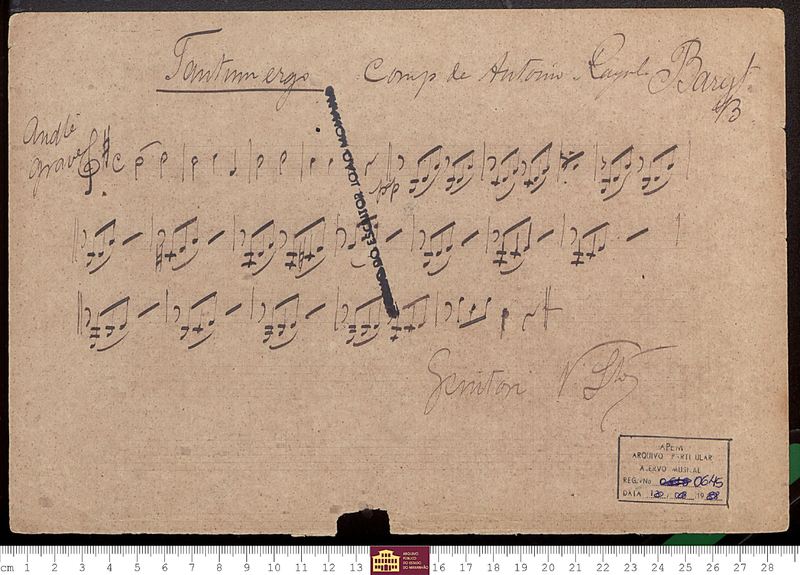 Tantum ergo Comp de Antonio Rayol Baryt
Andte
grave
C
pp
DO ESCRITOR JOÃO MOHANA
Genitori
APEM
ARQUIVO PARTICULAR
ACERVO MUSICAL
REG. Nº 0645
DATA 19
cm 1 2 3 4 5 6 7 8 9 10 11 12 13 16 17 18 19 20 21 22 23 24 25 26 27 28
ARQUIVO
PÚBLICO
DO ESTADO
DO MARANHÃO